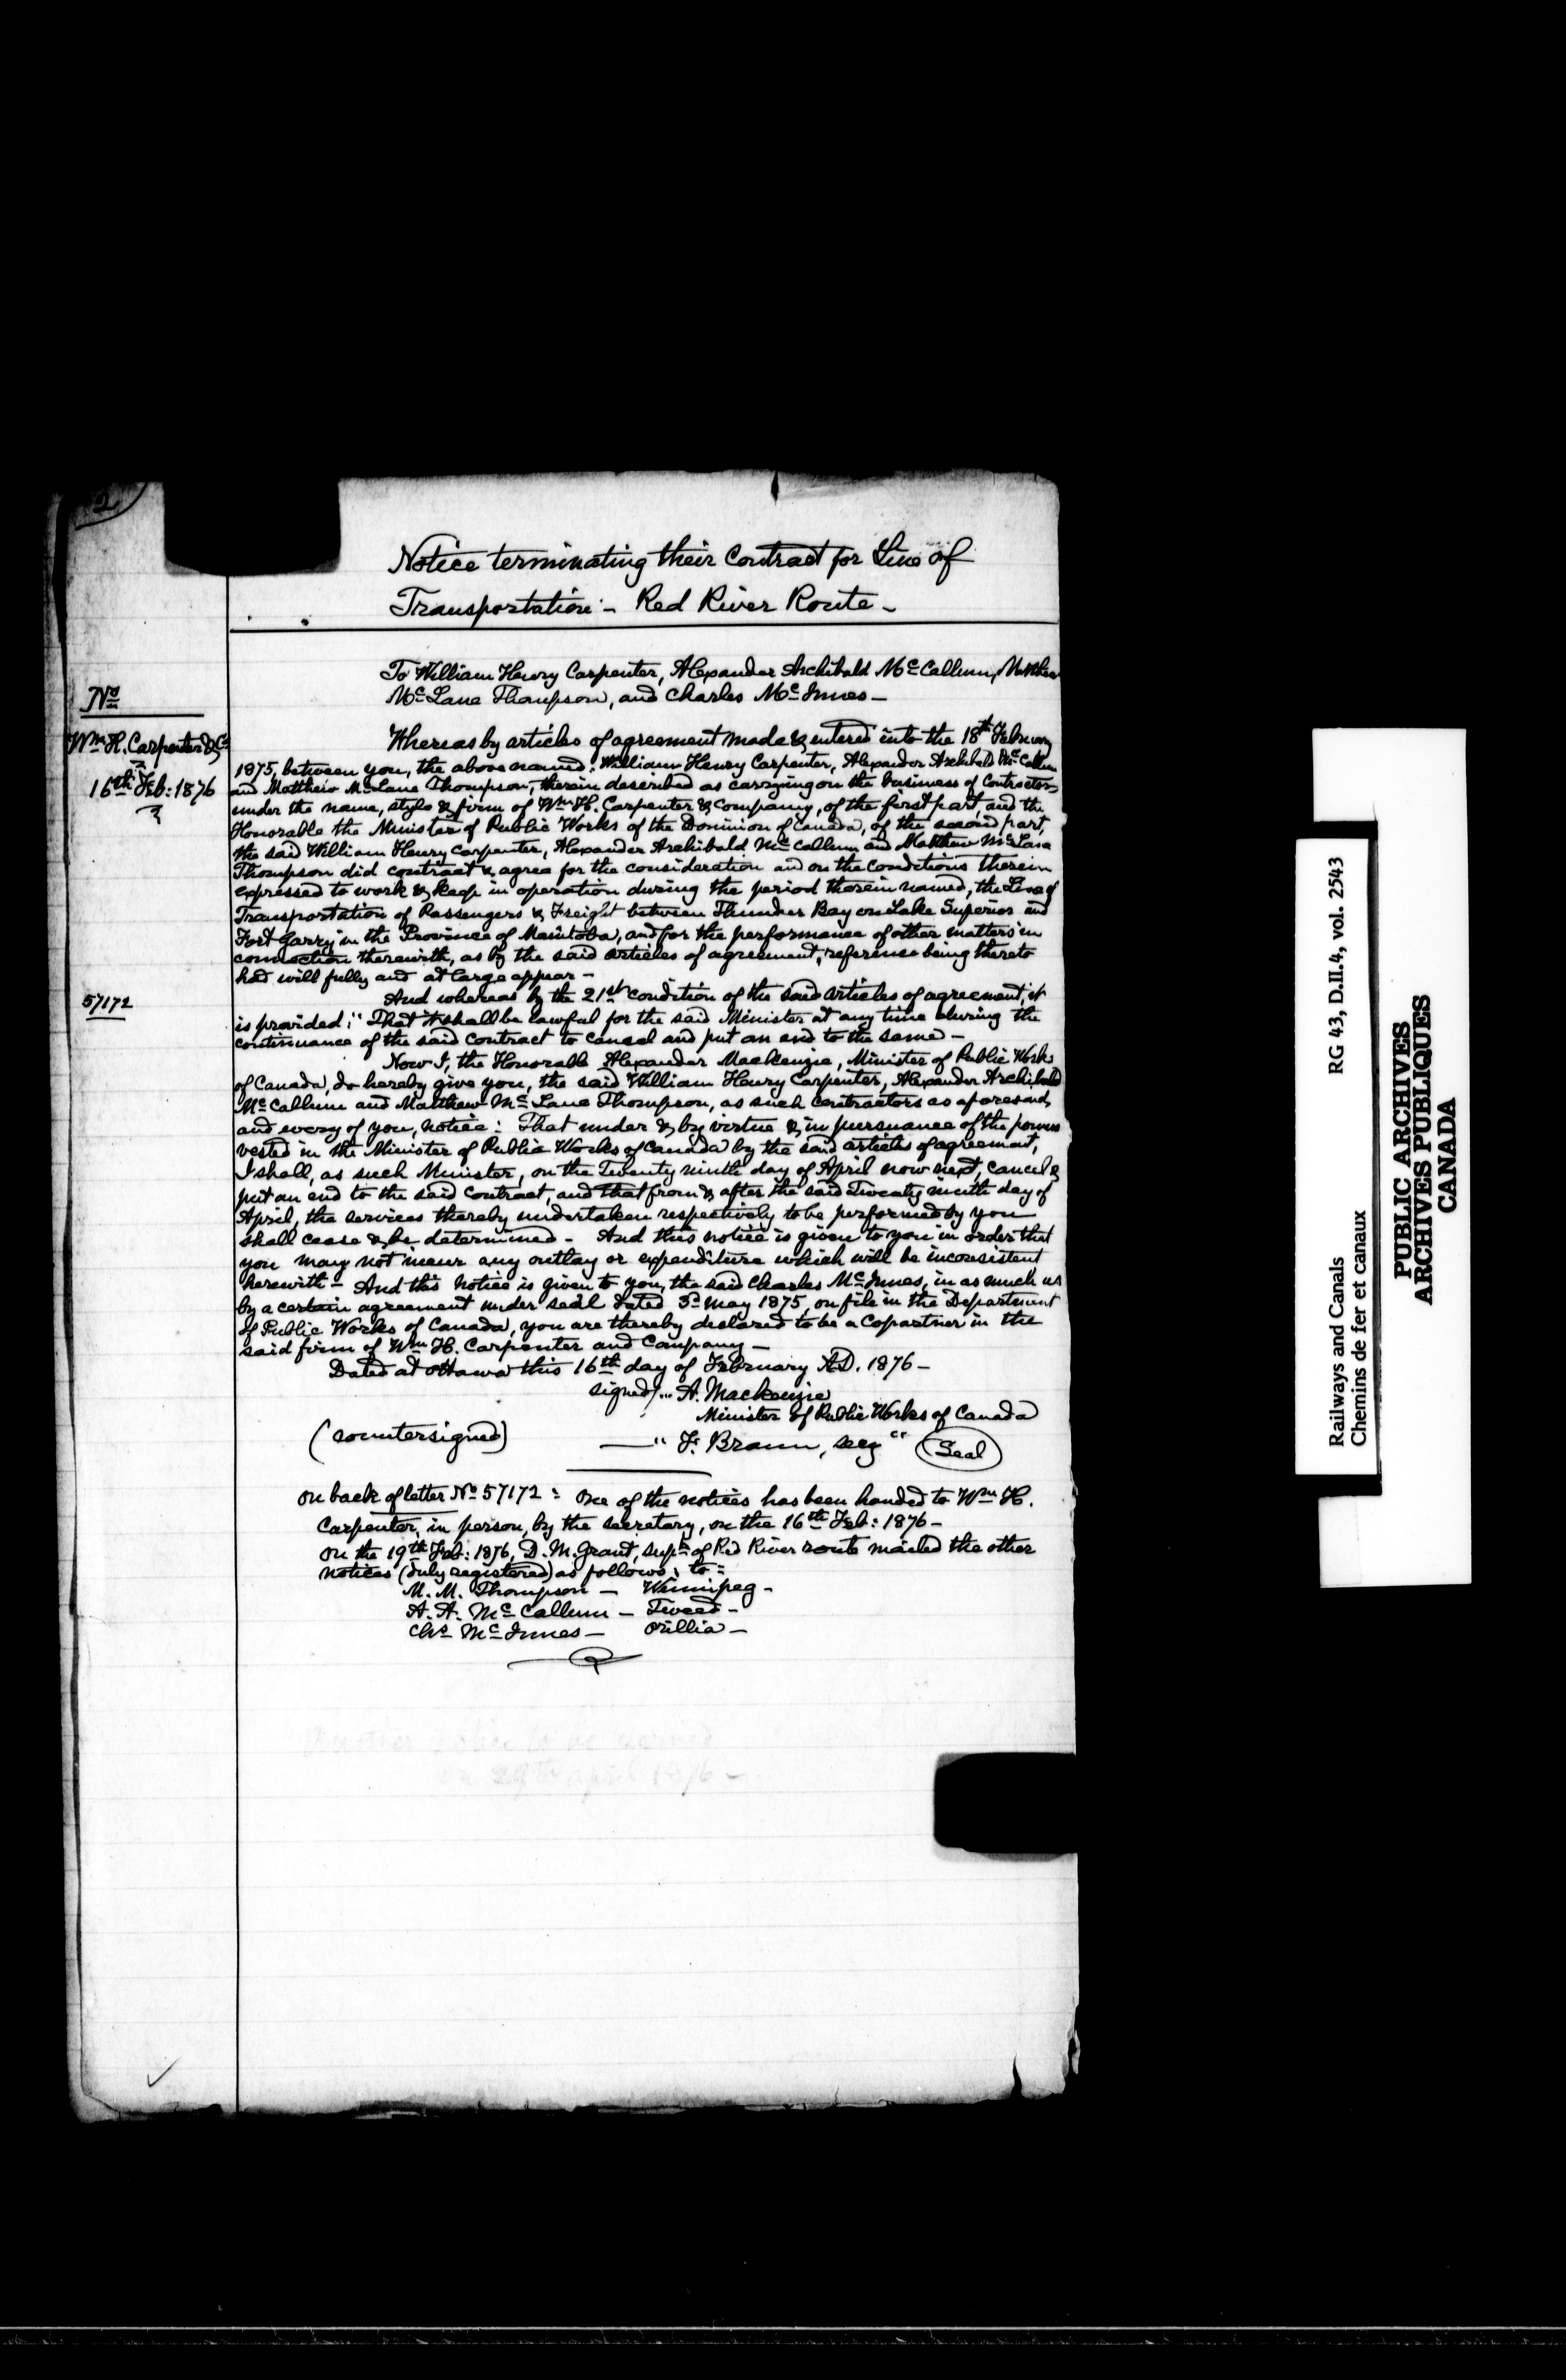 2
Notice terminating their Contract for Line of
Transportation - Red River Route -
To William Henry Carpenter, Alexander Archibald Mc Callum, Matthew
Mc Lane Thompson, and Charles Mc Innes -
No
Wm H. Carpenter & Co
16th Feb: 1876
Whereas by articles of agreement made & entered into the 18th February
1875, between you, the above named: William Henry Carpenter, Alexander Archibald Mc Callum
and Matthew Mc Lane Thompson, therein described as carrying on the business of Contractors
under the name, style & firm of Wm H. Carpenter & Company, of the first part, and the
Honorable the Minister of Public Works of the Dominion of Canada, of the second part,
the said William Henry Carpenter, Alexander Archibald Mc Callum and Matthew Mc Lane
Thompson did contract & agree for the consideration and on the conditions therein
expressed to work & keep in operation during the period therein named, the Line of
Transportation of Passengers & Freight between Thunder Bay on Lake Superior and
Fort Garry in the Province of Manitoba, and for the performance of other matters in
connection therewith, as by the said articles of agreement, reference being thereto
had will fully and at large appear -
57172
And whereas by the 21st condition of the said articles of agreement, it
is provided: "That it shall be lawful for the said Minister at any time during the
continuance of the said contract to cancel and put an end to the same -
Now I, the Honorable Alexander Mackenzie, Minister of Public Works
of Canada, do hereby give you, the said William Henry Carpenter, Alexander Archibald
Mc Callum and Matthew Mc Lane Thompson, as such contractors as aforesaid,
and every of you, notice: That under & by virtue & in pursuance of the powers
vested in the Minister of Public Works of Canada by the said articles of agreement,
I shall, as such Minister, on the Twenty ninth day of April now next, cancel &
put an end to the said contract, and that from & after the said Twenty ninth day of
April, the services thereby undertaken respectively to be performed by you
shall cease & be determined - And this notice is given to you in order that
you may not incur any outlay or expenditure which will be inconsistent
herewith - And this notice is given to you, the said Charles Mc Innes, in as much as
by a certain agreement under seal dated 3d May 1875, on file in the Department
of Public Works of Canada, you are thereby declared to be a Copartner in the
said firm of Wm H. Carpenter and Company -
Dated at Ottawa this 16th day of February A.D. 1876 -
signed/... A. Mackenzie
Minister of Public Works of Canada
(countersigned) — " F. Braun, secy " (Seal)
on back of letter No 57172: One of the notices has been handed to Wm H.
Carpenter, in person, by the secretary, on the 16th Feb: 1876 -
On the 19th Feb: 1876, D. M. Grant, supt of Red River route mailed the other
notices (duly registered) as follows: to:
M. M. Thompson - Winnipeg -
A. A. Mc Callum - Tweed -
Chs Mc Innes - Orillia -
Another notice to be served
on 29th April 1876 -
Railways and Canals RG 43, D.II.4, vol. 2543
Chemins de fer et canaux
PUBLIC ARCHIVES
ARCHIVES PUBLIQUES
CANADA